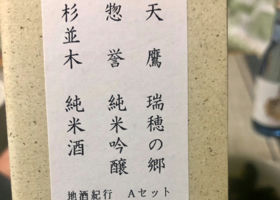 天鷹 瑞穂の郷
惣誉 純米吟醸
杉並木 純米酒
地酒紀行 Aセット